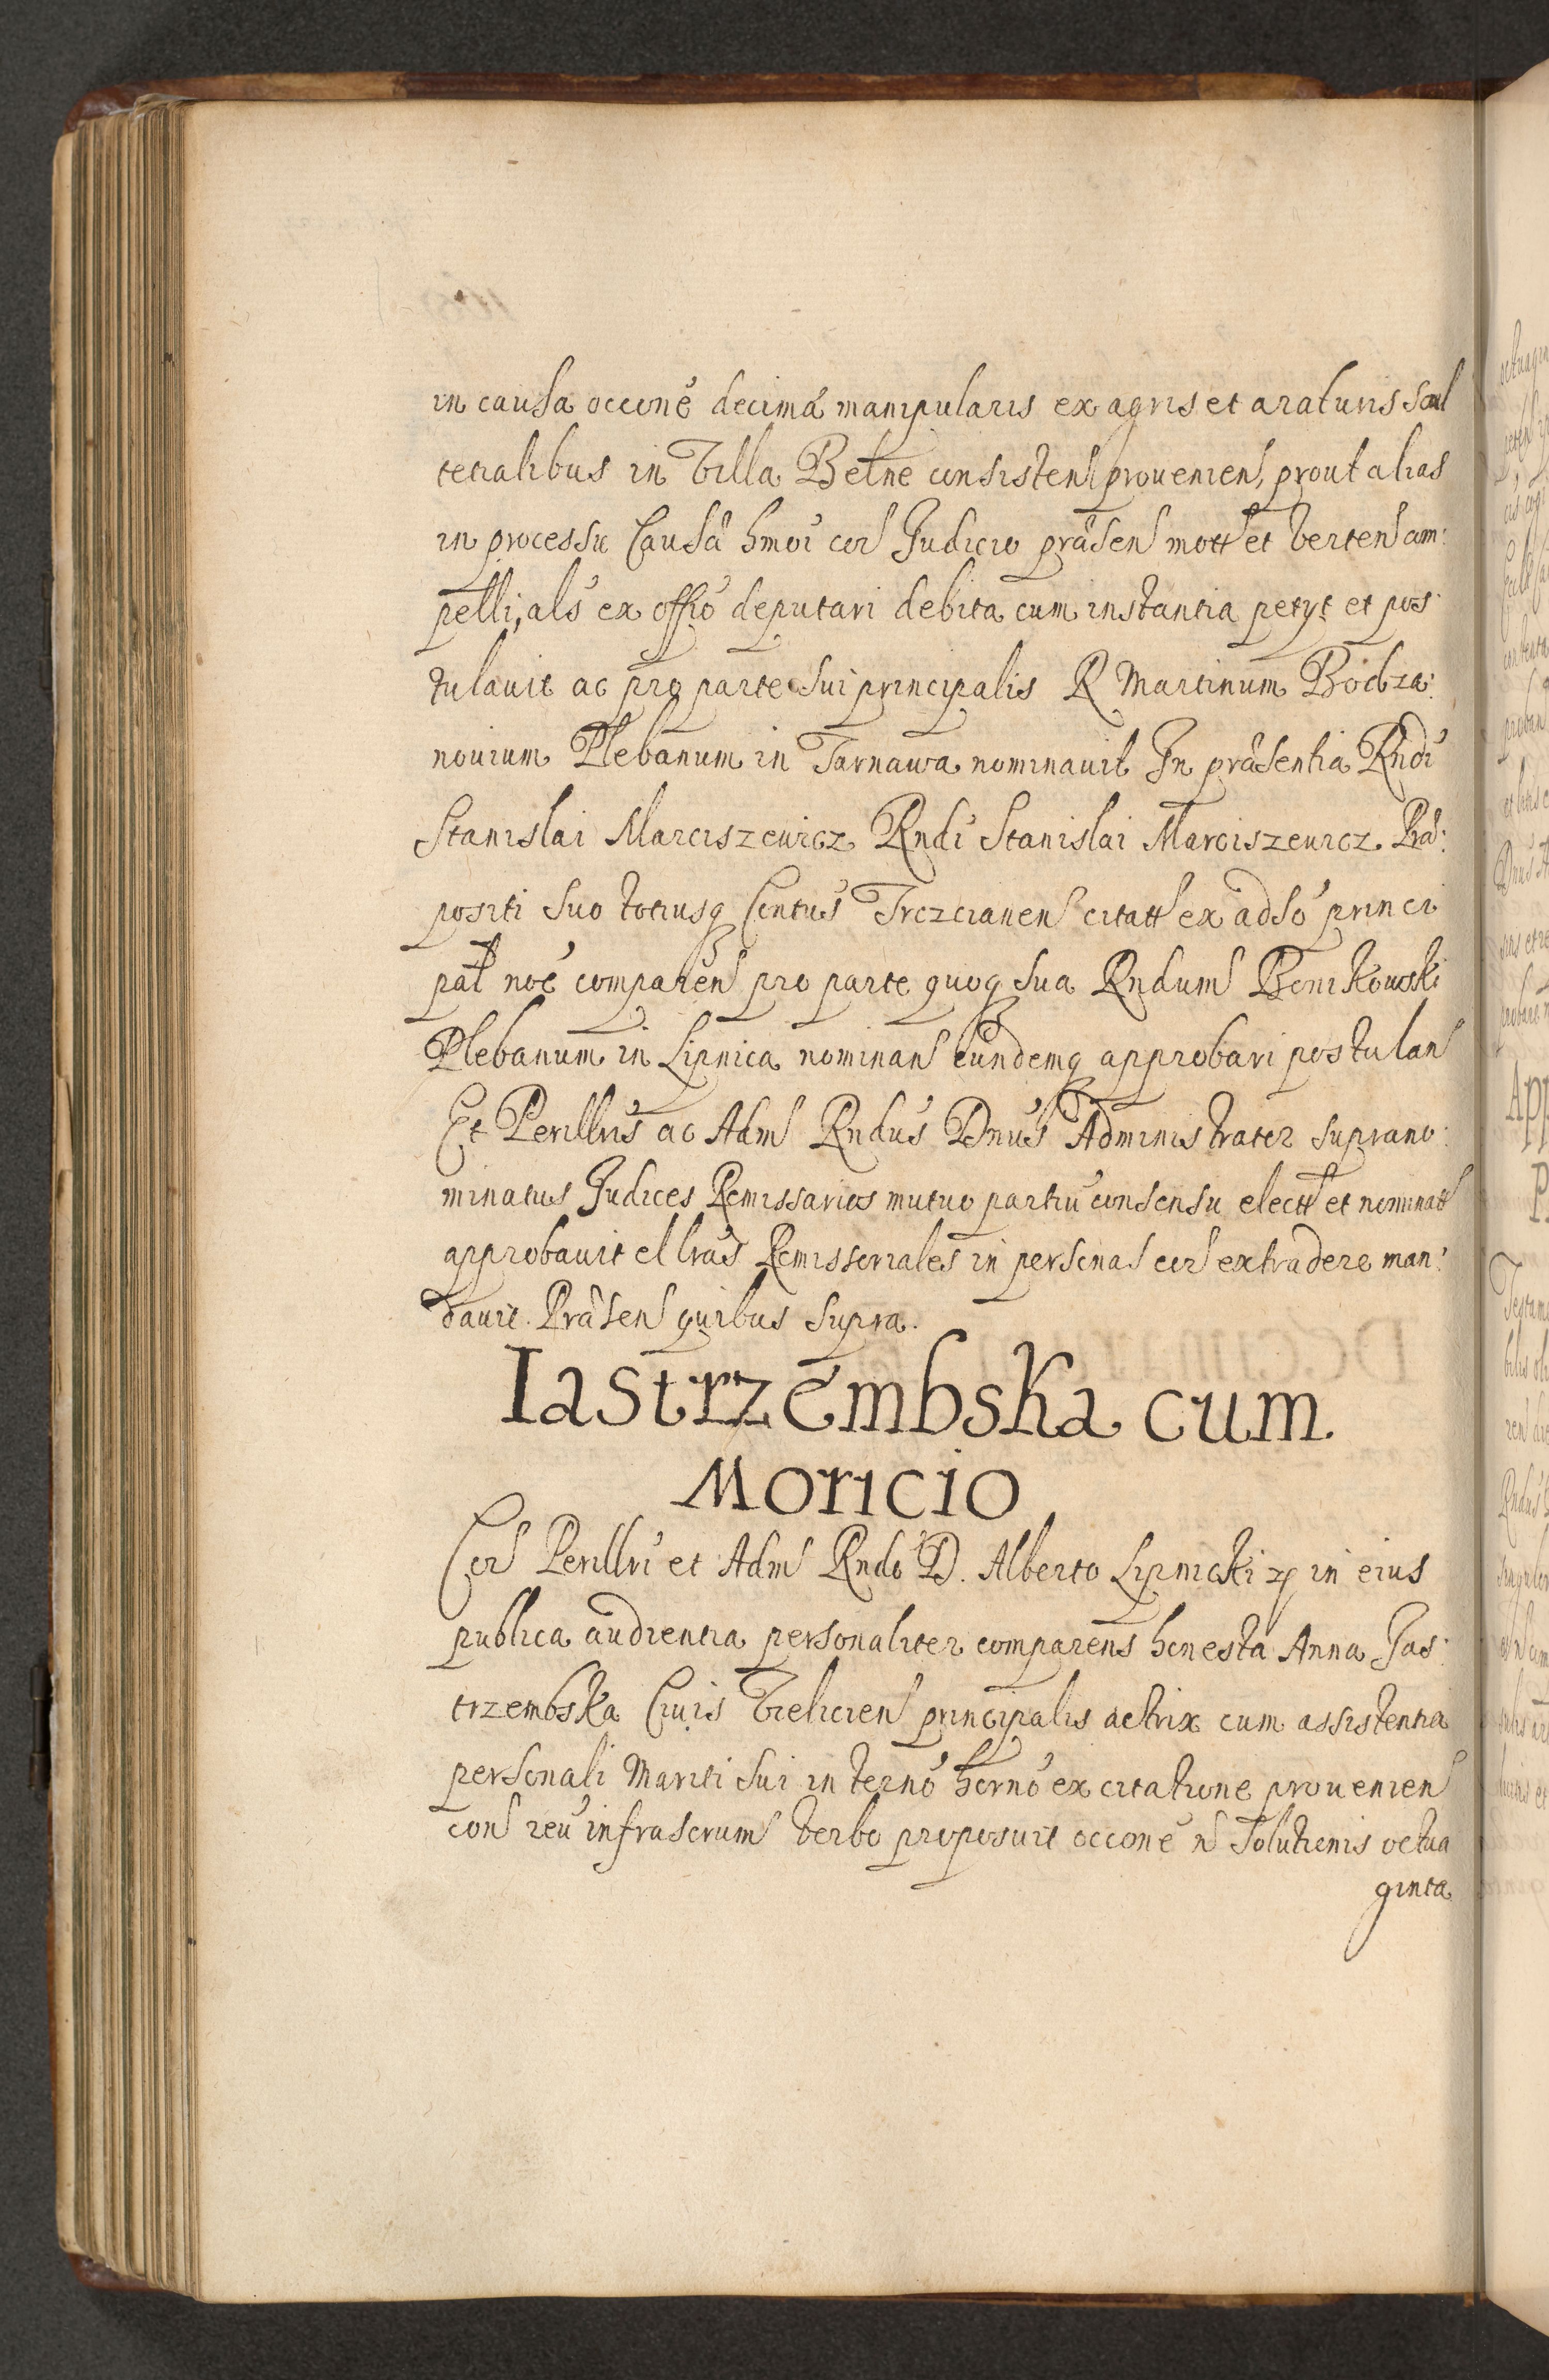 in causa occone decima manipularis ex agris et araturis scul
tetialibus in Villa Belne consisten provenien, prout alias
in processu Causa hmoi cor Judicio præsen mott et verten am:
pelli, als ex offio deputari debita cum instantia petyt et pos:
tulavit ac pro parte sui principalis R Martinum Bodza:
novium Plebanum in Tarnawa nominavit In præsentia Rndi
Stanislai Marciszewicz Rndi Stanislai Marciszewicz Præ:
positi suo totiusq Contus Trzcianen citatt ex adso princi
pal noe comparen pro parte quoq sua Rndum Benikowski
Plebanum in Lipnica nominan eundemq approbari postulan
Et Perillris ac Adm Rndus Dnus Administrator suprano:
minatus Judices Remissarios mutuo partiu consensu electt et nominatt
approbavit et lras Remissoriales in personas eor extradere man:
davit. Præsen quibus supra.
Iastrzembska cum
Moricio
Cor Perillri et Adm Rndo D. Alberto Lipnicki in eius
publica audientia personaliter comparens honesta Anna Jas:
trzembska Civis Vielicien principalis actrix cum assistentia
personali Mariti sui in terno horno ex citatione provenien
con reu infrascrum verbo proposuit occone n Solutionis octua
ginta